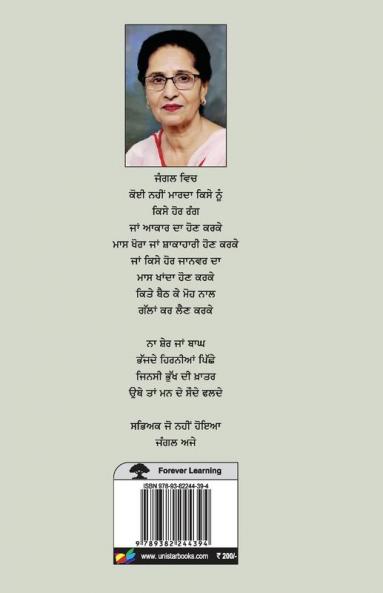 ਜੰਗਲ ਵਿਚ
ਕੋਈ ਨਹੀਂ ਮਾਰਦਾ ਕਿਸੇ ਨੂੰ
ਕਿਸੇ ਹੋਰ ਰੰਗ
ਜਾਂ ਆਕਾਰ ਦਾ ਹੋਣ ਕਰਕੇ
ਮਾਸ ਖੋਰਾ ਜਾਂ ਸ਼ਾਕਾਹਾਰੀ ਹੋਣ ਕਰਕੇ
ਜਾਂ ਕਿਸੇ ਹੋਰ ਜਾਨਵਰ ਦਾ
ਮਾਸ ਖਾਂਦਾ ਹੋਣ ਕਰਕੇ
ਕਿਤੇ ਬੈਠ ਕੇ ਮੋਹ ਨਾਲ
ਗੱਲਾਂ ਕਰ ਲੈਣ ਕਰਕੇ
ਨਾ ਸ਼ੇਰ ਜਾਂ ਬਾਘ
ਭੱਜਦੇ ਹਿਰਨੀਆਂ ਪਿੱਛੇ
ਜਿਨਸੀ ਭੁੱਖ ਦੀ ਖ਼ਾਤਰ
ਉਥੇ ਤਾਂ ਮਨ ਦੇ ਸੌਦੇ ਫਲਦੇ
ਸਭਿਅਕ ਜੋ ਨਹੀਂ ਹੋਇਆ
ਜੰਗਲ ਅਜੇ
Forever Learning
ISBN 978-93-82244-39-4
9 789382 244394
www. unistarbooks.com ₹ 200/-